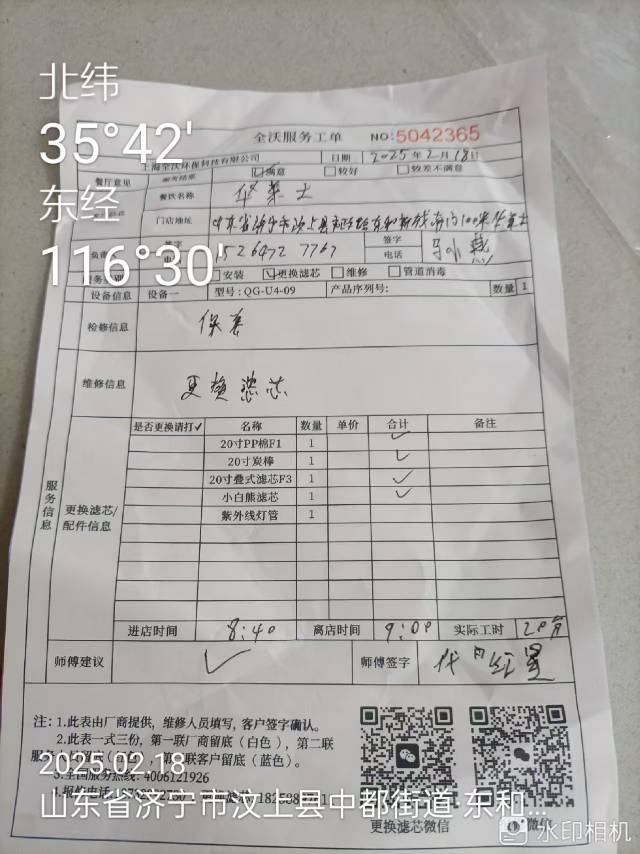 北纬
35°42'
东经
116°30'
全沃服务工单 NO:5042365
上海全沃环保科技有限公司 日期 2025年2月18日
餐厅意见 服务结果 满意 较好 较差不满意
餐饮名称 华莱士
门店地址 山东省济宁市汶上县
签字 1526472 7767 签字 电话
安装 更换滤芯 维修 管道消毒
设备信息 设备一 型号:QG-U4-09 产品序列号: 数量 1
检修信息 保养
维修信息 更换滤芯
服务信息
更换滤芯/配件信息
是否更换请打✓ 名称 数量 单价 合计 备注
20寸PP棉F1 1 ✓
20寸炭棒 1 ✓
20寸叠式滤芯F3 1 ✓
小白熊滤芯 1 ✓
紫外线灯管 1
进店时间 8:40 离店时间 9:00 实际工时 20
师傅建议 ✓ 师傅签字
注:1.此表由厂商提供,维修人员填写,客户签字确认。
2.此表一式三份,第一联厂商留底(白色),第二联
客户留底(蓝色)。
3.全国服务热线:4006121926
2025.02.18
山东省济宁市汶上县中都街道·东和...
更换滤芯微信
微信
水印相机